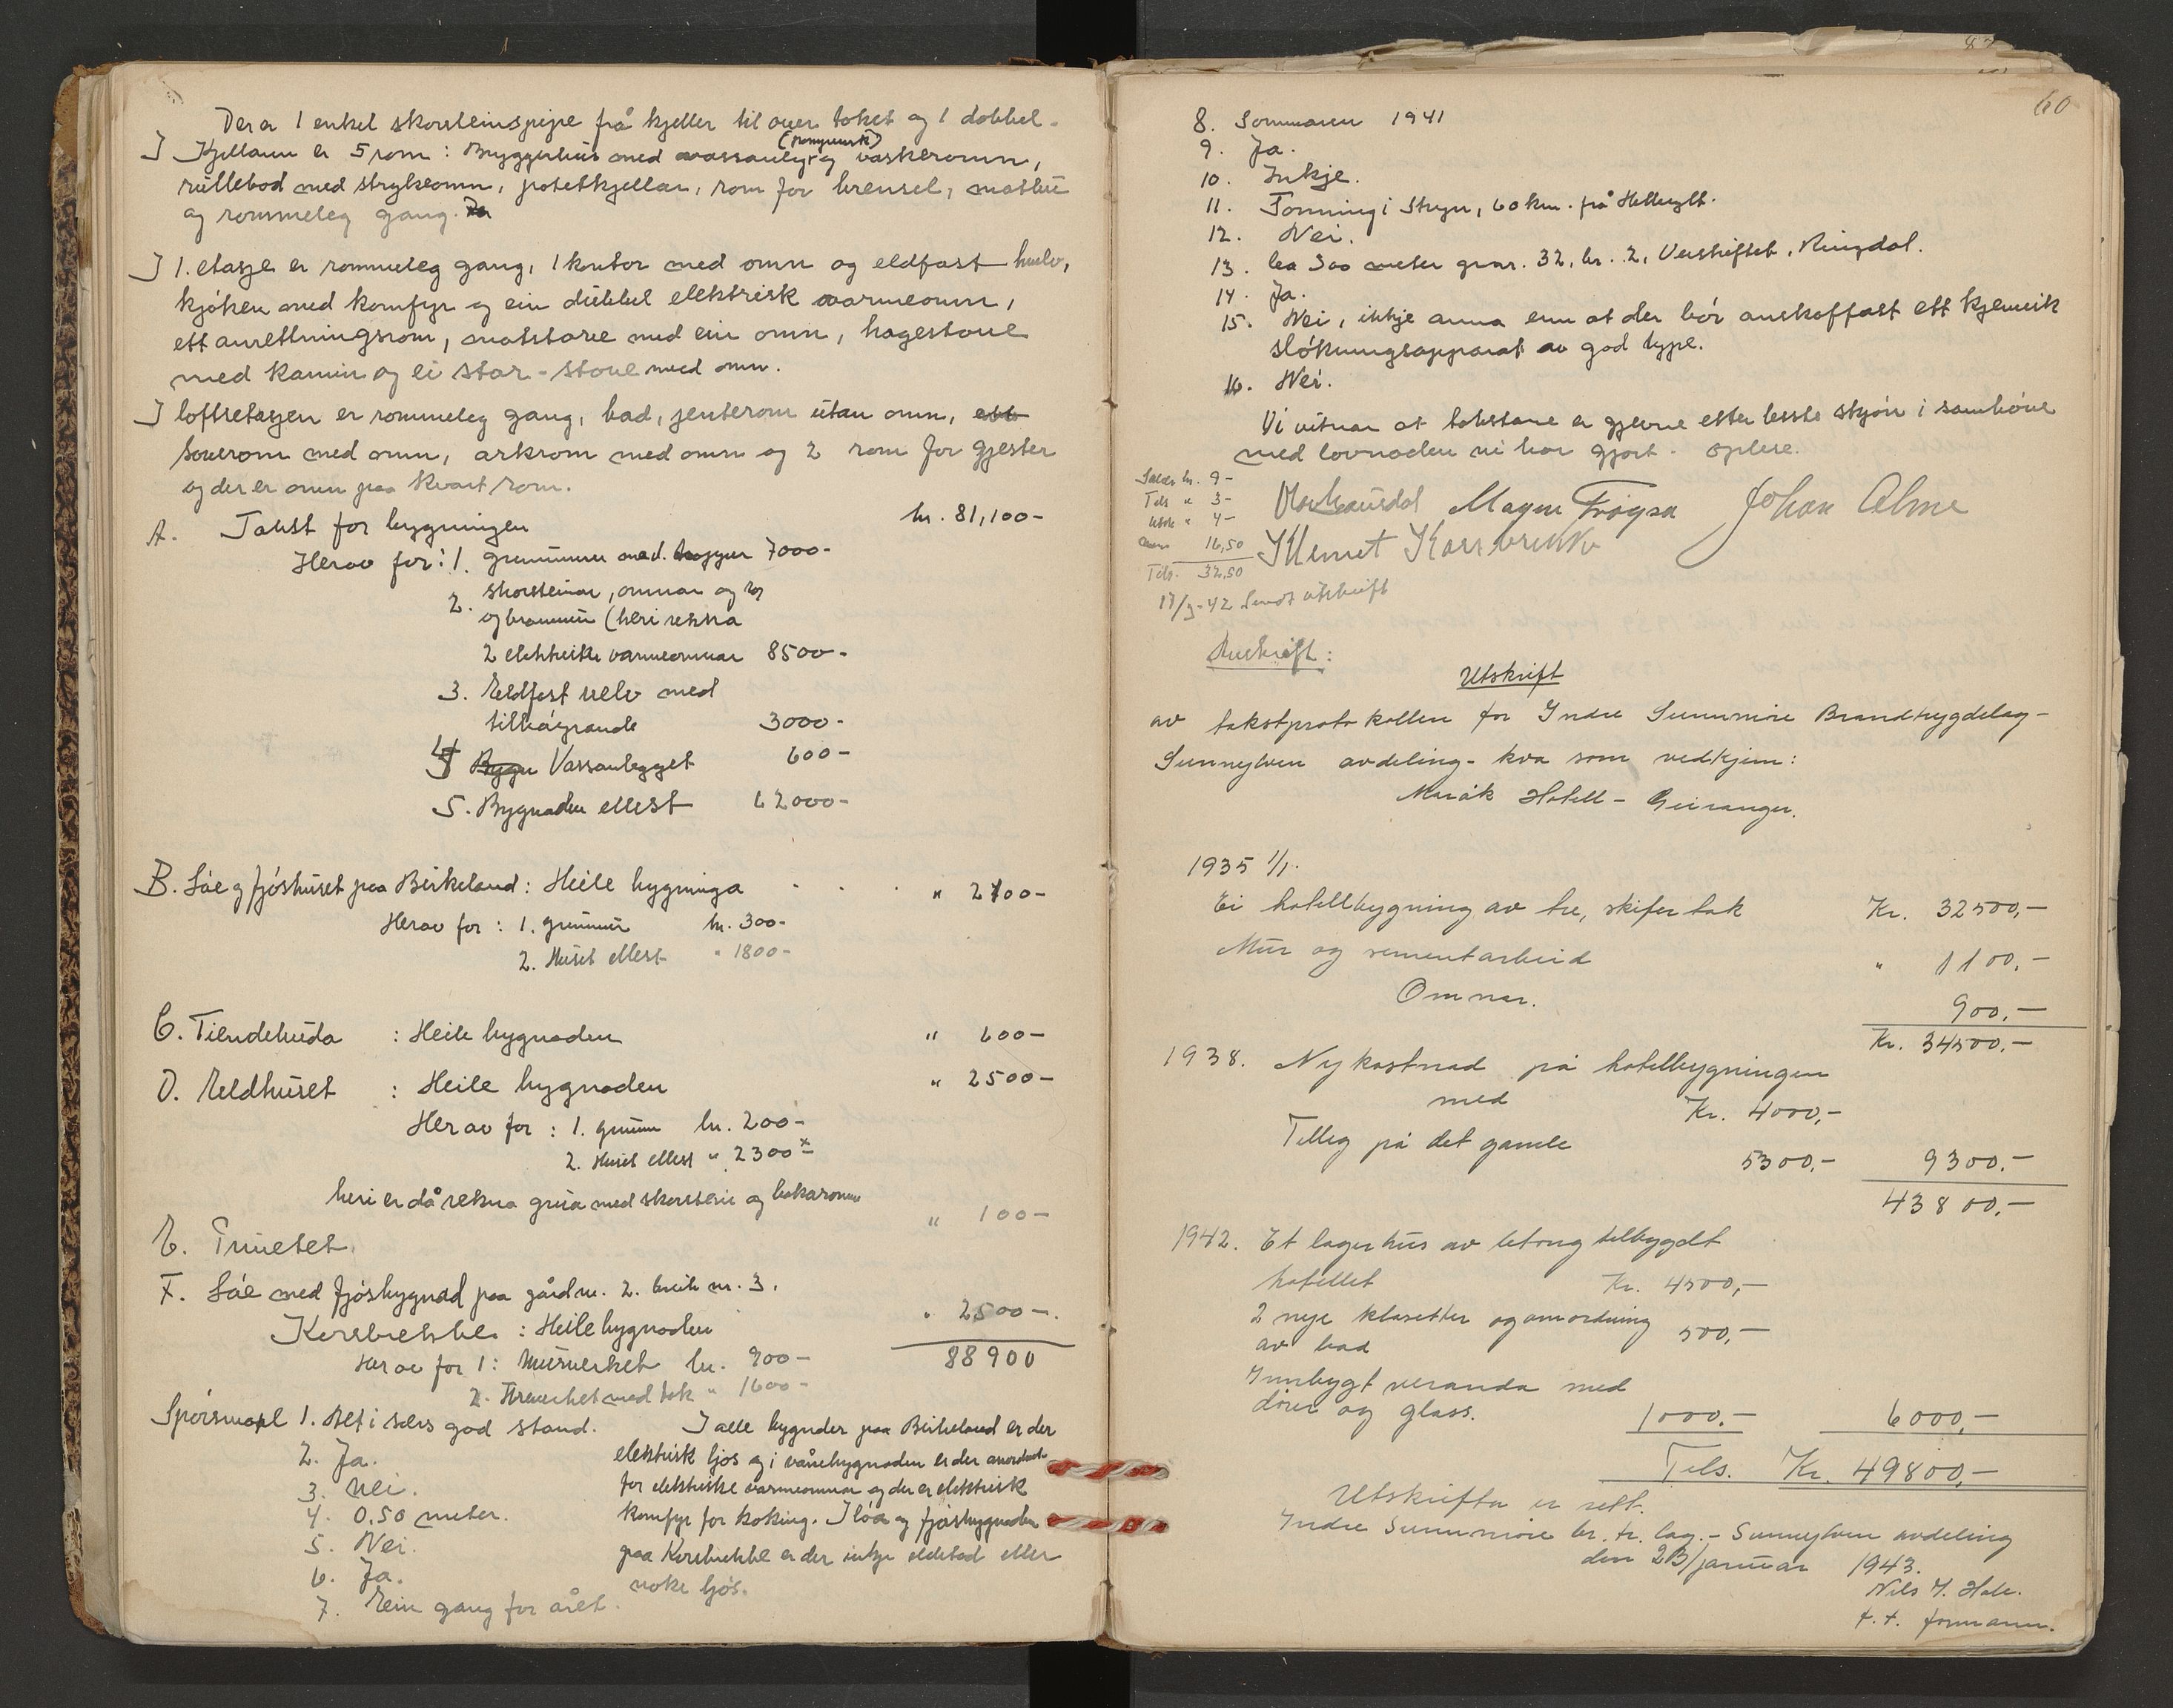 Der er 1 enkel skorsteinspipe frå kjeller til over taket og 1 dobbel.
I Kjellaren er 5 rom: Bryggerhus med vassanlegg og vaskeromn,
rullebod med strykeomn, potetkjellar, rom for brensel, matbu
og rommeleg gang.
I 1. etasje er rommeleg gang, 1 kontor med omn og eldfast hvelv,
kjøken med komfyr og ein dubbel elektrisk varmeomn,
ett anrettningsrom, matstove med ein omn, hagestove
med kamin og ei stor-stove med omn.
I loftsetasjen er rommeleg gang, bad, jenterom utan omn, ett
soverom med omn, arkrom med omn og 2 rom for gjester
og der er omn paa kvart rom.
A. Takst for bygningen kr. 81,100-
Herav for: 1. grunnmur med trapper 7000-
2. skorsteinar, omnar og rør
og brannmur (heri rekna
2 elektriske varmeomnar 8500-
3. Eldfast velv med
tilhøyrande 3000-
4 Bygn Vassanlegget 600-
5. Bygnaden ellest 62000-
B. Løe og fjøshuset paa Birkeland: Heile bygninga . . . " 2100-
Herav for: 1. grunnmur kr. 300-
2. Huset ellest " 1800-
C. Tiendebuda : Heile bygnaden " 600-
D. Eeldhuset : Heile bygnaden " 2500-
Herav for: 1. grunnm kr. 200-
2. Huset ellest " 2300 x
heri er då rekna grua med skorstein og bakaromn
" 100-
E. Privetet.
F. Løe med fjøsbygnad paa gårdnr. 2. bruk nr. 3.
Korsbrekke : Heile bygnaden " 2500-.
88900
Herav for 1: Murverket kr. 900-
2. Treverket med tak " 1600-
Spørsmaal 1. Alt i særs god stand.
2. Ja.
3. Nei.
4. 0,50 meter.
5. Nei.
6. Ja.
7. Eein gang for året.
I alle bygnader paa Birkeland er der
elektrisk ljos og i vånebygnaden er der anordnet
for elektriske varmeomnar og der er elektrisk
komfyr for koking. I løa og fjøsbygnaden
paa Korsbrekke er der inkje eldstad eller
noke ljós.
60
8. Sommaren 1941
9. Ja.
10. Inkje.
11. Tonning i Stryn, 60 km. frå Hellesylt.
12. Nei.
13. Ca 300 meter gnr. 32, br. 2, Verkstedet, Ringdal.
14. Ja.
15. Nei, ikkje anna enn at der bör anskaffast ett kjemisk
slókningsapparat av god type.
16. Nei.
Vi vitnar at takstane er gjevne etter beste skjøn i samhøve
med lovnaden vi har gjort. Opplese.
kr. 9-
Tils " 3-
" 4-
16,50
Tils. 32,50
Magne Frøysa Johan Alme
Klemet Korsbrekke
17/3-42 Sendt utskrift
Avskrift:
Utskrift
av takstprotokollen for Indre Sunnmøre Brandbygdelag-
Sunnylven avdeling- kva som vedkjem:
Merák Hotell - Geiranger.
1935 1/1.
Ei hotellbygning av tre, skifer tak Kr. 32500,-
Mur og sementarbeid " 1100,-
Omnar. 900,-
Kr. 34500,-
1938. Nykostnad på hotelbygningen
med Kr. 4000,-
Tilleg på det gamle 5300,- 9300,-
43800,-
1942. Et lagerhus av betong tilbygdt
hotellet Kr. 4500,-
2 nye klosetter og anordning
av bad 500,-
Innbygt veranda med
dører og glass. 1000,- 6000,-
Tils. Kr. 49800,-
Utskrifta er rett.
Indre Sunnmøre br. tr. lag.- Sunnylven avdeling
den 23/januar 1943.
Nils J. Hole.
f. t. formann.